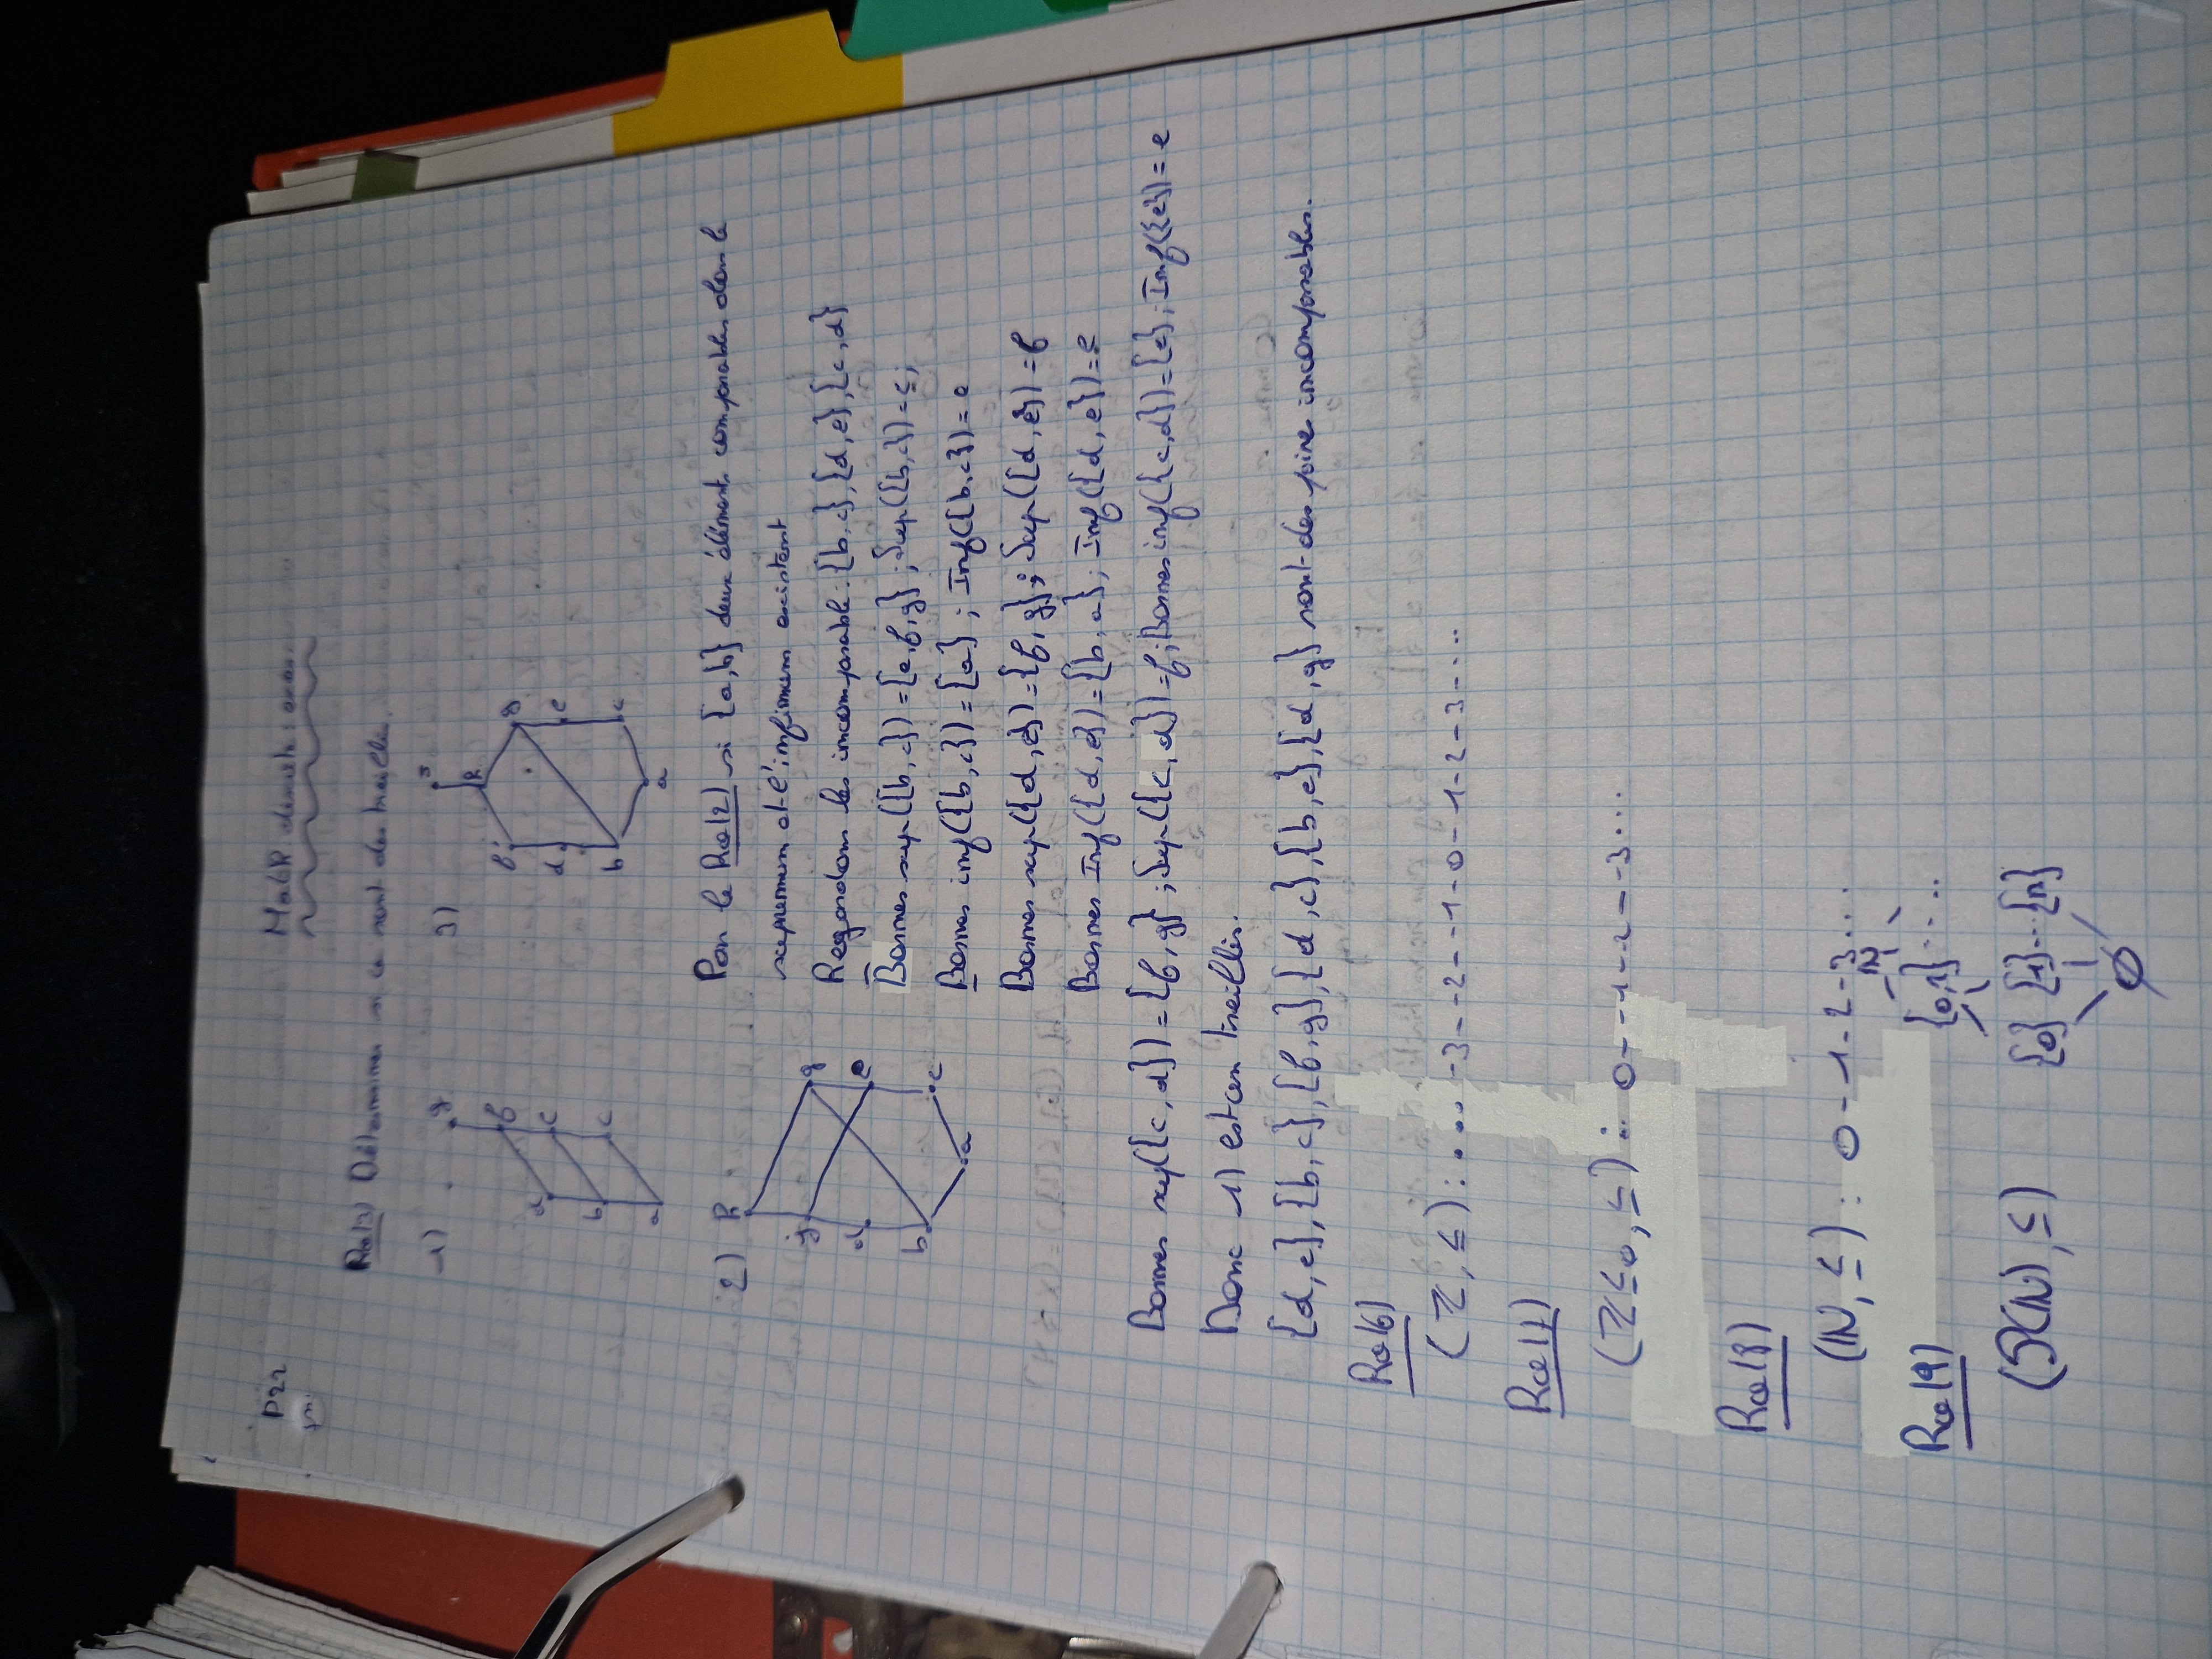 P22
Math discrète : exos.
Rel3) Déterminer si ce sont des treillis.
1) 3)
g
f
d e
b c
a
s
h
f g
d e
b c
a
2)
h
f g
d e
b c
a
Par le Rel2) si {a,b} deux éléments comparables alors le
supremum et l'infimum existent
Regardons les incomparable : {b,c}, {d,e}, {c,d}
Bornes sup({b,c}) = {e,f,g} ; Sup({b,c}) = e ;
Bornes inf({b,c}) = {a} ; Inf({b,c}) = a
Bornes sup({d,e}) = {f,g} ; Sup({d,e}) = f
Bornes Inf({d,e}) = {b,a} ; Inf({d,e}) =
Bornes sup({c,d}) = {f,g} ; Sup({c,d}) = f ; Bornes inf({c,d}) = {a} ; Inf({e}) = e
Donc 1) est un treillis.
{d,e}, {b,c}, {f,g}, {d,c}, {b,e}, {d,g} sont des paires incomparables.
Rel6)
(ℤ, ≤) : .... -3 - -2 - -1 - 0 - 1 - 2 - 3 - ....
Rel7)
(ℤ≤0, ≤) : 0 - -1 - -2 - -3 ...
Rel8)
(ℕ, ≤) : 0 - 1 - 2 - 3 ...
ℕ
Rel9) {0,1} ....
(𝒫(ℕ), ⊆) {0} {1} ... {n}
∅